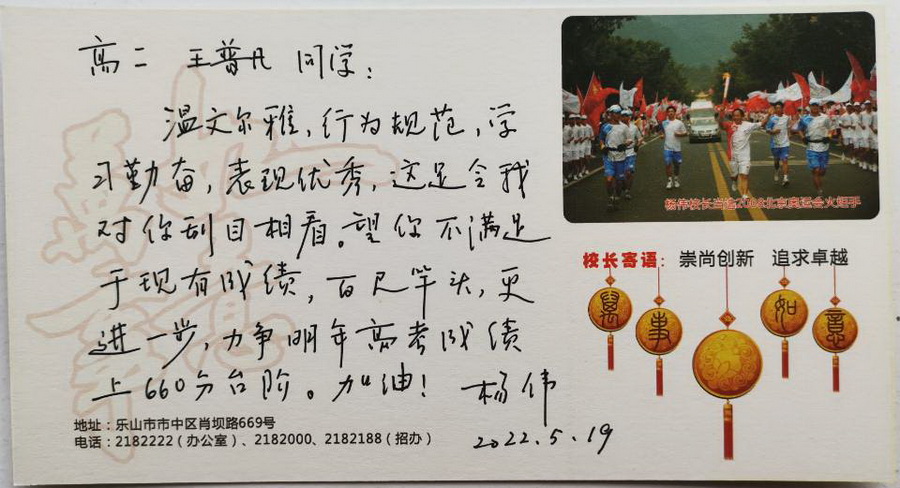 高二 王普凡 同学：
温文尔雅，行为规范，学
习勤奋，表现优秀，这足令我
对你刮目相看。望你不满足
于现有成绩，百尺竿头，更
进一步，力争明年高考成绩
上660分台阶。加油！ 杨伟
2022.5.19
地址：乐山市市中区肖坝路669号
电话：2182222（办公室）、2182000、2182188（招办）
杨伟校长当选2008北京奥运会火炬手
校长寄语：崇尚创新 追求卓越
万事如意